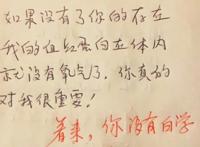 如果没有了你的存在
我的血红蛋白在体内
就没有氧气了，你真的
对我很重要！
看来，你没有白学